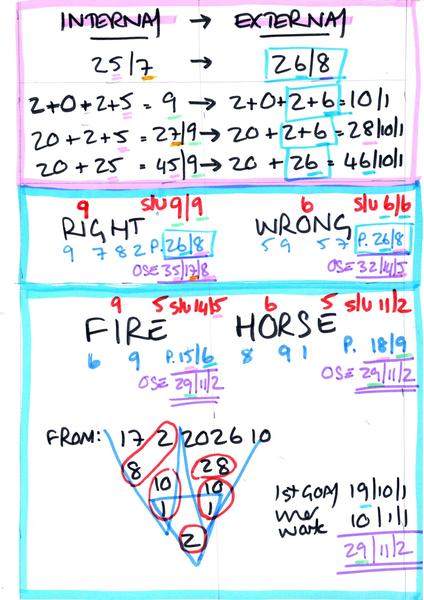 INTERNAL → EXTERNAL
25/7 → 26/8
2+0+2+5 = 9 → 2+0+2+6=10/1
20+2+5 = 27/9 → 20+2+6 = 28/10/1
20 + 25 = 45/9 → 20 + 26 = 46/10/1
9 S/U 9/9 6 S/U 6/6
RIGHT WRONG
9 7 8 2 P. 26/8 5 9 5 7 P. 26/8
OSE 35/17/8 OSE 32/14/5
9 5 S/U 14/5 6 5 S/U 11/2
FIRE HORSE
6 9 P. 15/6 8 9 1 P. 18/9
OSE 29/11/2 29/11/2
FROM: 17 2 2026 10
8 28
10 10
1 1
2
1st GOAL 19/10/1
10/1/1
work
29/11/2